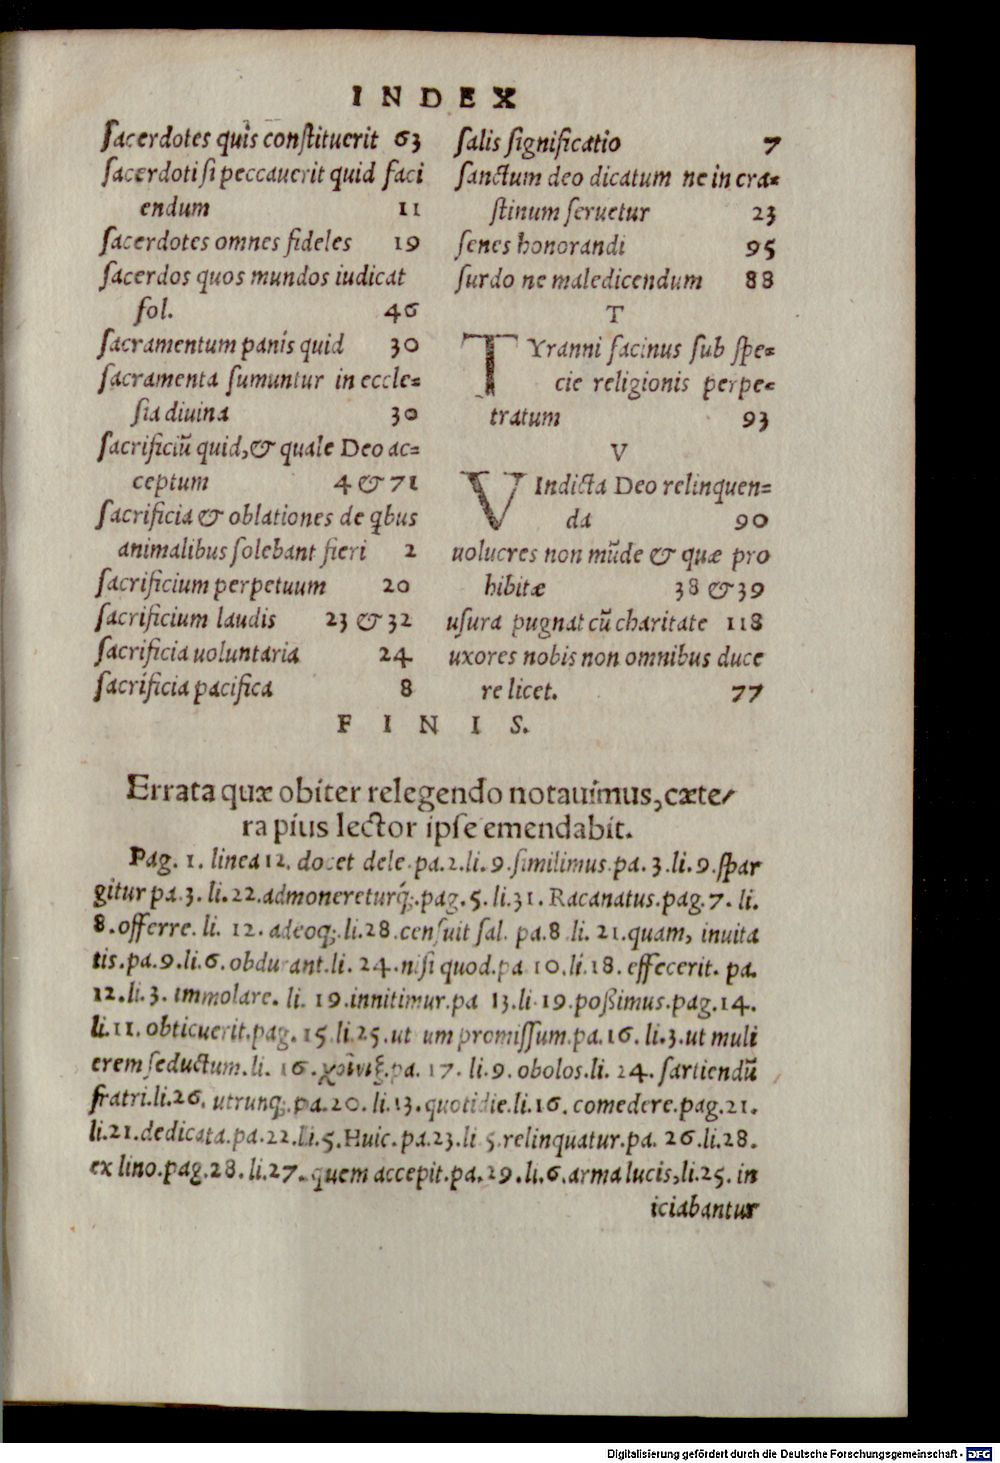 INDEX
sacerdotes quis constituerit 63
sacerdoti si peccauerit quid faci
endum 11
sacerdotes omnes fideles 19
sacerdos quos mundos iudicat
fol. 46
sacramentum panis quid 30
sacramenta sumuntur in eccle=
sia diuina 30
sacrificiũ quid, & quale Deo ac=
ceptum 4 & 71
sacrificia & oblationes de qbus
animalibus solebant fieri 2
sacrificium perpetuum 20
sacrificium laudis 23 & 32
sacrificia uoluntaria 24
sacrificia pacifica 8
salis significatio 7
sanctum deo dicatum ne in cra=
stinum seruetur 23
senes honorandi 95
surdo ne maledicendum 88
T
TYranni facinus sub spe=
cie religionis perpe=
tratum 93
V
VIndicta Deo relinquen=
da 90
uolucres non mũde & quæ pro
hibitæ 38 & 39
usura pugnat cũ charitate 118
uxores nobis non omnibus duce
re licet. 77
FINIS.
Errata quæ obiter relegendo notauimus, cæte/
ra pius lector ipse emendabit.
Pag. 1. linea 12. docet dele. pa. 2. li. 9. similimus. pa. 3. li. 9. spar
gitur pa. 3. li. 22. admonereturq́;. pag. 5. li. 31. Racanatus. pag. 7. li.
8. offerre. li. 12. adeoq;. li. 28. censuit sal. pa. 8 li. 21. quam, inuita
tis. pa. 9. li. 6. obdurant. li. 24. nisi quod. pa 10. li. 18. effecerit. pa.
12. li. 3. immolare. li. 19. innitimur. pa 13. li 19. poßimus. pag. 14.
li. 11. obticuerit. pag. 15 li. 25. ut um promissum. pa. 16. li. 3. ut muli
erem seductum. li. 16. pa. 17. li. 9. obolos. li. 24. sartiendũ
fratri. li. 26. utrunq;. pa. 20. li. 13. quotidie. li. 16. comedere. pag. 21.
li. 21. dedicata. pa. 22. li. 5. Huic. pa. 23. li 5. relinquatur. pa. 26. li. 28.
ex lino. pag. 28. li. 27. quem accepit. pa. 29. li. 6. arma lucis, li. 25. in
iciabantur
Digitalisierung gefördert durch die Deutsche Forschungsgemeinschaft - DFG